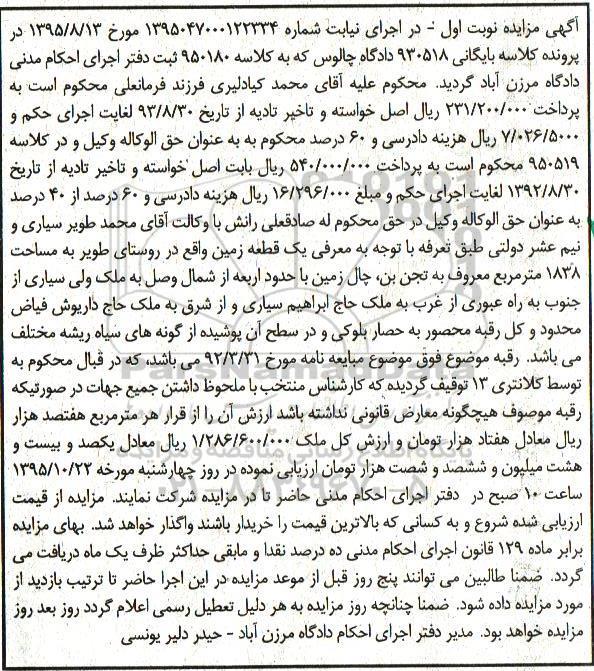 آگهی مزایده نوبت اول - در اجرای نیابت شماره ۱۳۹۵۰۴۷۰۰۰۱۲۲۳۳۴ مورخ ۱۳۹۵/۸/۱۳ در
پرونده کلاسه بایگانی ۹۳۰۵۱۸ دادگاه چالوس که به کلاسه ۹۵۰۱۸۰ ثبت دفتر اجرای احکام مدنی
دادگاه مرزن آباد گردید. محکوم علیه آقای محمد کیادلیری فرزند فرمانعلی محکوم است به
پرداخت ۲۳۱/۲۰۰/۰۰۰ ریال اصل خواسته و تاخیر تادیه از تاریخ ۹۳/۸/۳۰ لغایت اجرای حکم و
۷/۰۲۶/۵۰۰۰ ریال هزینه دادرسی و ۶۰ درصد محکوم به به عنوان حق الوکاله وکیل و در کلاسه
۹۵۰۵۱۹ محکوم است به پرداخت ۵۴۰/۰۰۰/۰۰۰ ریال بابت اصل خواسته و تاخیر تادیه از تاریخ
۱۳۹۲/۸/۳۰ لغایت اجرای حکم و مبلغ ۱۶/۲۹۶/۰۰۰ ریال هزینه دادرسی و ۶۰ درصد از ۴۰ درصد
به عنوان حق الوکاله وکیل در حق محکوم له صادقعلی رانش با وکالت آقای محمد طویر سیاری و
نیم عشر دولتی طبق تعرفه با توجه به معرفی یک قطعه زمین واقع در روستای طویر به مساحت
۱۸۳۸ مترمربع معروف به تجن بن، چال زمین با حدود اربعه از شمال وصل به ملک ولی سیاری از
جنوب به راه عبوری از غرب به ملک حاج ابراهیم سیاری و از شرق به ملک حاج داریوش فیاض
محدود و کل رقبه محصور به حصار بلوکی و در سطح آن پوشیده از گونه های سیاه ریشه مختلف
می باشد. رقبه موضوع فوق موضوع مبایعه نامه مورخ ۹۲/۳/۳۱ می باشد، که در قبال محکوم به
توسط کلانتری ۱۳ توقیف گردیده که کارشناس منتخب با ملحوظ داشتن جمیع جهات در صورتیکه
رقبه موصوف هیچگونه معارض قانونی نداشته باشد ارزش آن را از قرار هر مترمربع هفتصد هزار
ریال معادل هفتاد هزار تومان و ارزش کل ملک ۱/۲۸۶/۶۰۰/۰۰۰ ریال معادل یکصد و بیست و
هشت میلیون و ششصد و شصت هزار تومان ارزیابی نموده در روز چهارشنبه مورخه ۱۳۹۵/۱۰/۲۲
ساعت ۱۰ صبح در دفتر اجرای احکام مدنی حاضر تا در مزایده شرکت نمایند. مزایده از قیمت
ارزیابی شده شروع و به کسانی که بالاترین قیمت را خریدار باشند واگذار خواهد شد. بهای مزایده
برابر ماده ۱۲۹ قانون اجرای احکام مدنی ده درصد نقدا و مابقی حداکثر ظرف یک ماه دریافت می
گردد. ضمنا طالبین می توانند پنج روز قبل از موعد مزایده در این اجرا حاضر تا ترتیب بازدید از
مورد مزایده داده شود. ضمنا چنانچه روز مزایده به هر دلیل تعطیل رسمی اعلام گردد روز بعد روز
مزایده خواهد بود. مدیر دفتر اجرای احکام دادگاه مرزن آباد - حیدر دلیر یونسی
ParsNamadData